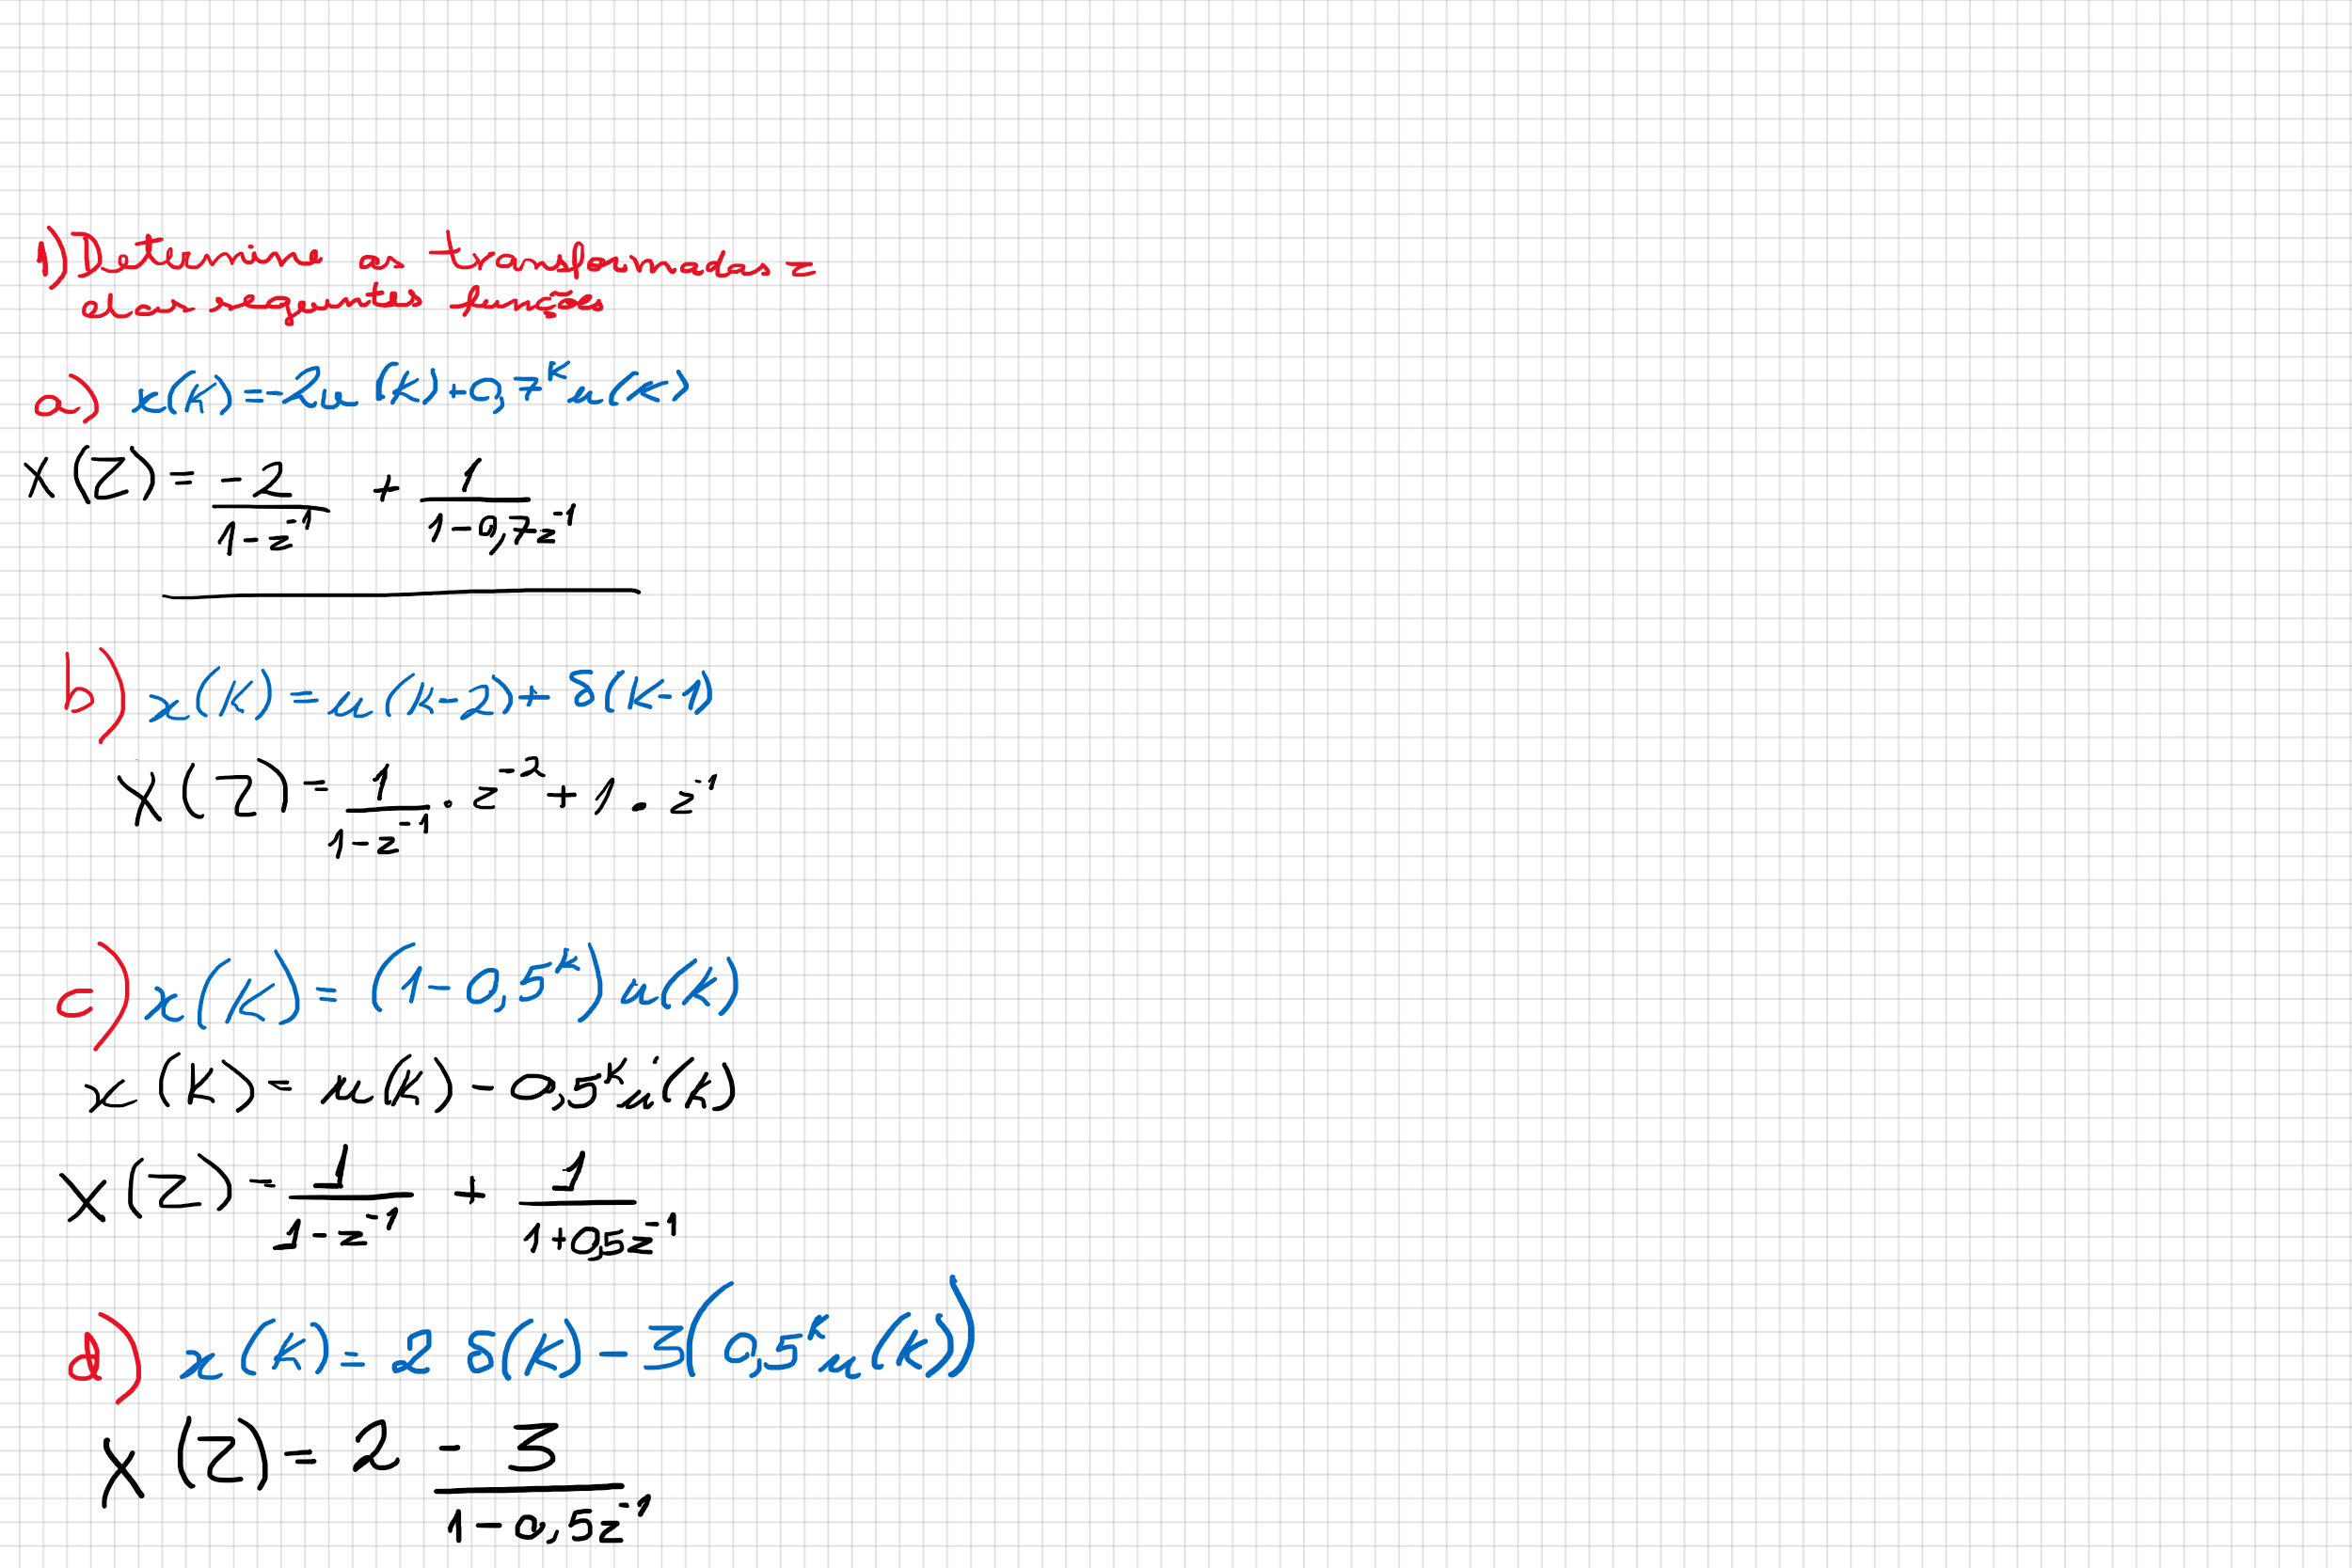 1) Determine as transformadas z
das seguntes funções
a) x(k) = -2u(k) + 0,7^k u(k)
X(Z) = -2/(1-z^-1) + 1/(1-0,7z^-1)
b) x(k) = u(k-2) + δ(k-1)
X(Z) = 1/(1-z^-1) · z^-2 + 1 · z^-1
c) x(k) = (1-0,5^k) u(k)
x(k) = u(k) - 0,5^k u(k)
X(Z) = 1/(1-z^-1) + 1/(1+0,5z^-1)
d) x(k) = 2 δ(k) - 3(0,5^k u(k))
X(Z) = 2 - 3/(1-0,5z^-1)